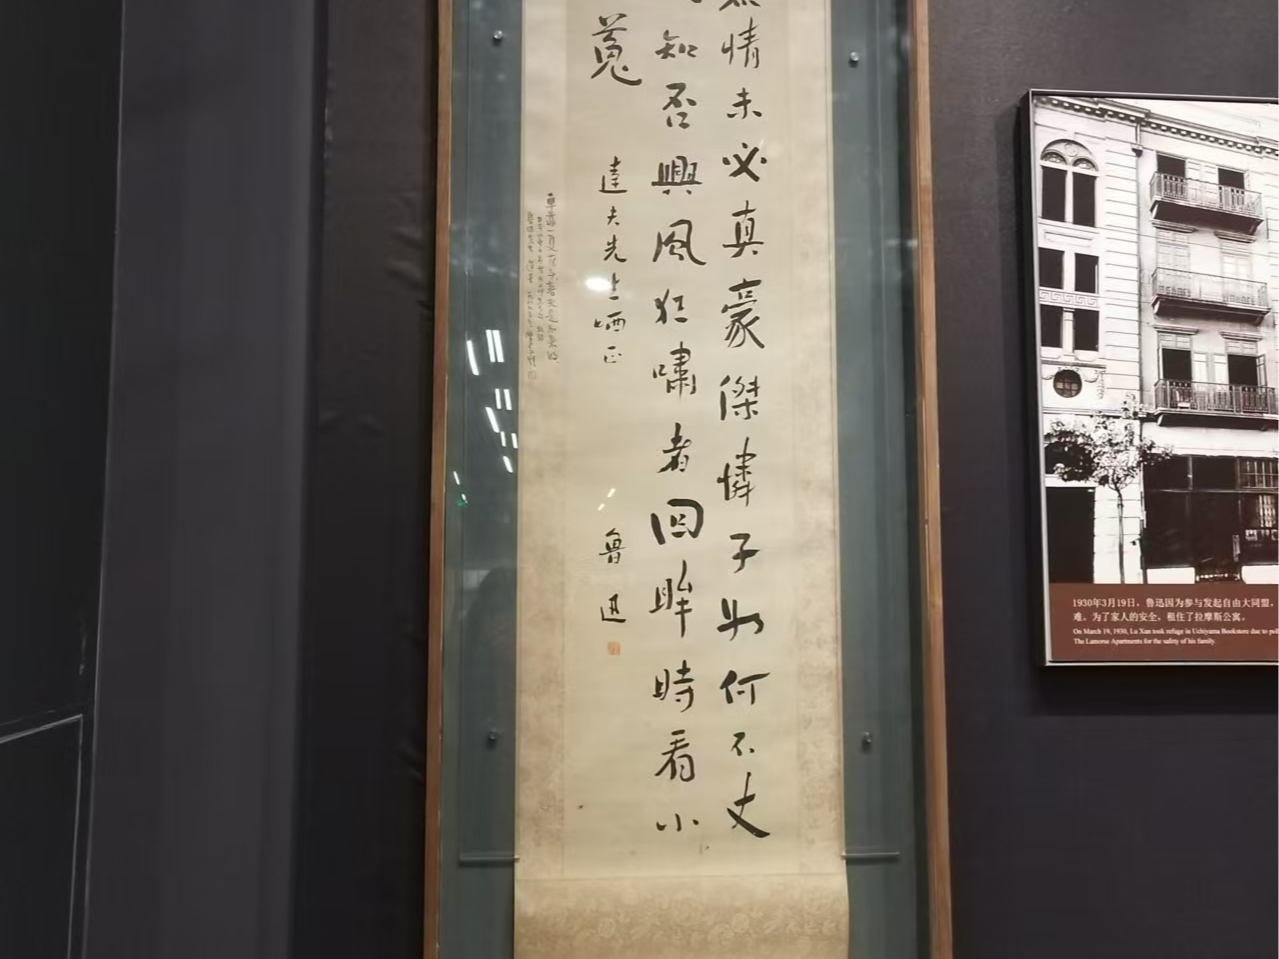 情未必真豪傑憐子如何不丈
知否興風狂嘯者回眸時看小
菟
達夫先生哂正
魯迅
1930年3月19日，鲁迅因为参与发起自由大同盟，
难。为了家人的安全，租住了拉摩斯公寓。
On March 19, 1930, Lu Xun took refuge in Uchiyama Bookstore due to
The Lamorse Apartments for the safety of his family.